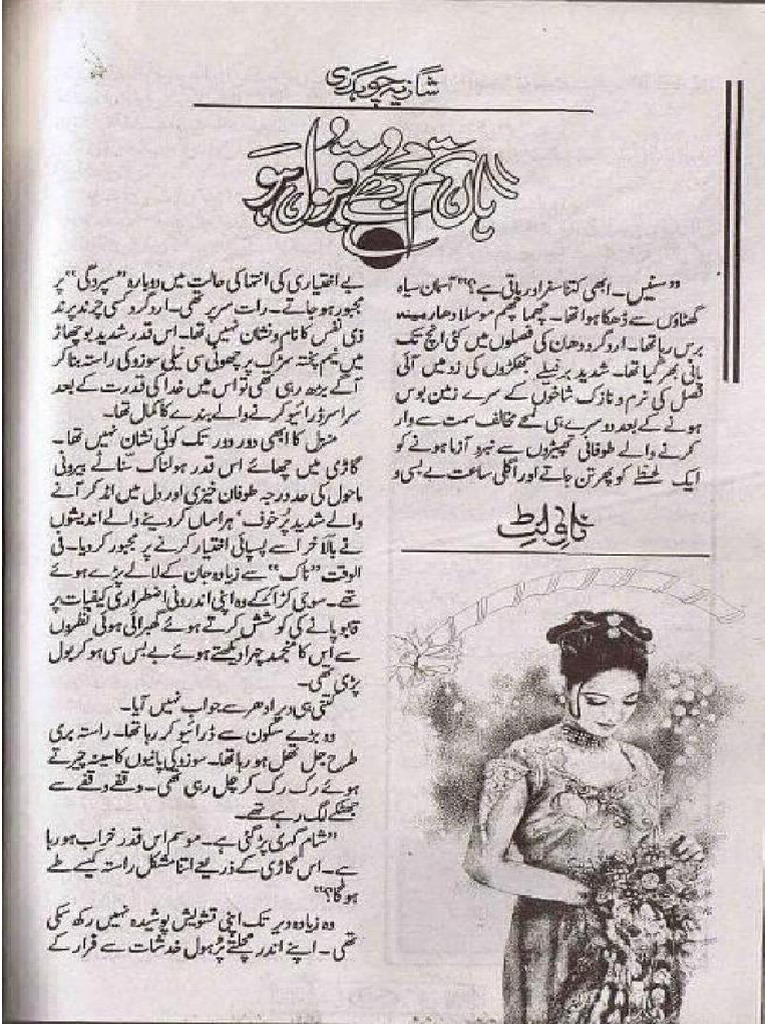 شازیہ چوہدری
ہاں تم مجھے قبول ہو
”سنیں۔ ابھی کتنا سفر اور باقی ہے؟“ آسمان سیاہ
گھٹاؤں سے ڈھکا ہوا تھا۔ چھما چھم موسلا دھار مینہ
برس رہا تھا۔ ارد گرد دھان کی فصلوں میں کئی انچ تک
پانی بھر گیا تھا۔ شدید برفیلے جھکڑوں کی زد میں آئی
فصل کی نرم و نازک شاخوں کے سرے زمین بوس
ہونے کے بعد دوسرے ہی لمحے مخالف سمت سے وار
کرنے والے طوفانی تھپیڑوں سے نبرد آزما ہونے کو
ایک لحظے کو پھر تن جاتے اور اگلی ساعت بے بسی و
ناولٹ
بے اختیاری کی انتہا کی حالت میں دوبارہ ”سپردگی“ پر
مجبور ہو جاتے۔ رات سر پر تھی۔ ارد گرد کسی چرند پرند
ذی نفس کا نام و نشان نہیں تھا۔ اس قدر شدید بوچھاڑ
میں نیم پختہ سڑک پر چھوٹی سی نیلی سوزوکی راستہ بنا کر
آگے بڑھ رہی تھی تو اس میں خدا کی قدرت کے بعد
سراسر ڈرائیو کرنے والے بندے کا کمال تھا۔
منزل کا ابھی دور دور تک کوئی نشان نہیں تھا۔
گاڑی میں چھائے اس قدر ہولناک سناٹے بیرونی
ماحول کی حد درجہ طوفان خیزی اور دل میں امڈ کر آنے
والے شدید پُر خوف‘ ہراساں کر دینے والے اندیشوں
نے بالآخر اسے پسپائی اختیار کرنے پر مجبور کر دیا۔ فی
الوقت ”ناک“ سے زیادہ جان کے لالے پڑے ہوئے
تھے۔ سو جی کڑا کے وہ اپنی اندرونی اضطراری کیفیات پر
قابو پانے کی کوشش کرتے ہوئے گھبرائی ہوئی نظروں
سے اس کا منجمد چہرا دیکھتے ہوئے بے بس سی ہو کر بول
پڑی تھی۔
کتنی ہی دیر ادھر سے جواب نہیں آیا۔
وہ بڑے سکون سے ڈرائیو کر رہا تھا۔ راستہ بری
طرح جل تھل ہو رہا تھا۔ سوزوکی پانیوں کا سینہ چیرتے
ہوئے رک رک کر چل رہی تھی۔ وقفے وقفے سے
جھٹکے لگ رہے تھے۔
”شام گہری پڑ گئی ہے۔ موسم اس قدر خراب ہو رہا
ہے۔ اس گاڑی کے ذریعے اتنا مشکل راستہ کیسے طے
ہو گا؟“
وہ زیادہ دیر تک اپنی تشویش پوشیدہ نہیں رکھ سکی
تھی۔ اپنے اندر مچلتے پُر ہول خدشات سے فرار کے